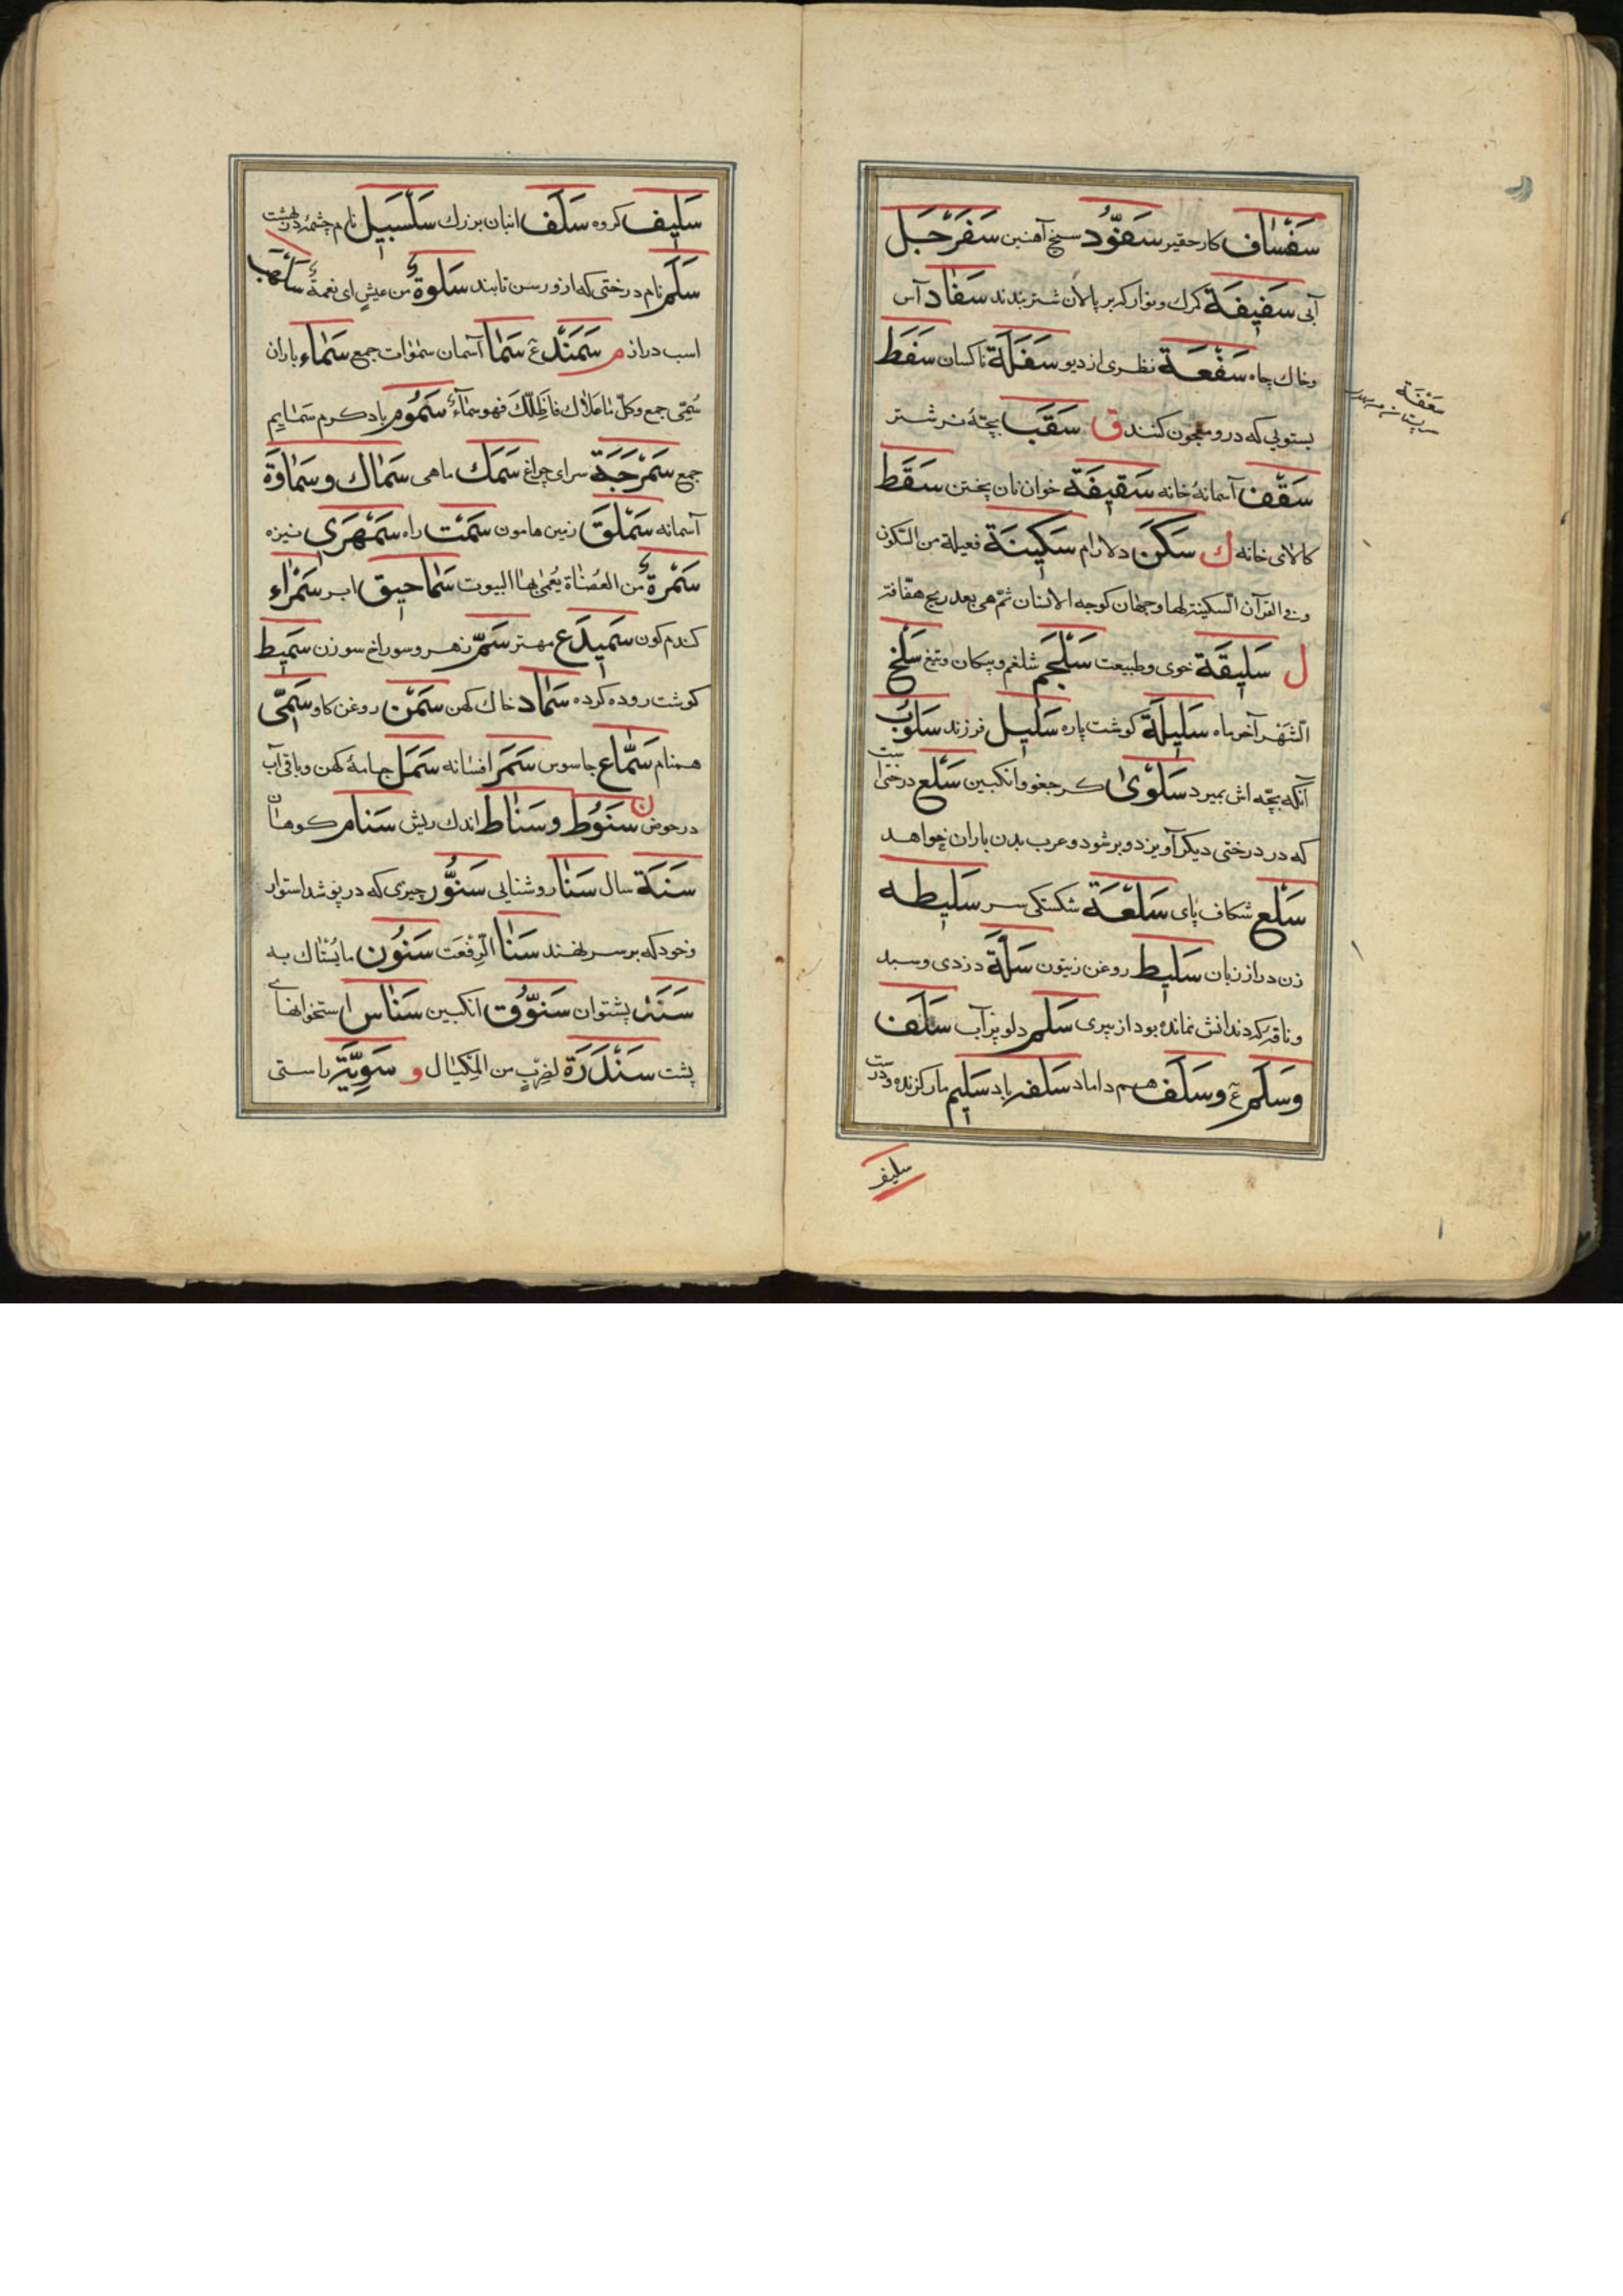 سَفْسٰاف کار حقیر سَفُّود سیخ آهنین سَفَرْجَل
آبی سَفیفَة کمرك ونوار که بر پالان شتر بندند سَفٰاد آس
وخاك چاه سَفْعَة نظری از دیو سَفَلَة ناکسان سَفَط
بستویی که درو معجون کنند ق سَقَب بچّهٔ نر شتر
سَقْف آسمانهٔ خانه سَقیفَة خوان نان پختن سَقَط
کالای خانه ك سَكَن دلارام سَكینَة فعیلة من السّکون
وفی القرآن السّکینة لها وجهان کوجه الانسان ثمّ هی بعد ریح هفّافة
ل سَلیقَة خوی وطبیعت سَلْجَم شلغم وپیکان وتیغ سَلْخ
الشَّهْر آخر ماه سَلیلَة کوشت پاره سَلیل فرزند سَلُوب
آنکه بچّه اش بمیرد سَلْوٰی کرجغو وانکبین سَلَع درختی است
که در درختی دیکر آویزد وبر شود وعرب بدن باران خواهد
سَلْع شکاف پای سَلْعَة شکستکی سر سَلیطه
زن دراز زبان سَلیط روغن زیتون سَلَّة دزدی وسبد
وناقه که دندانش نمانده بود از پیری سَلْم دلو پر آب سَلَف
وسَلَم ع وسَلَف هم داماد سَلْفه باد سَلیم مار کزنده ودرست
سلیف
سعفة
سَلیف کروه سَلْف انبان بزرك سَلْسَبیل نام چشمهٔ در بهشت
سَلَم نام درختی که ازو رسن تابند سَلْوَةٌ من عیش ای نعمةٌ سَلْهَب
اسب دراز م سَمَنْد ع سَمٰا آسمان سمٰوات جمع سَمٰاء باران
سُمِیّ جمع وکلّ ما علاك فاظلّك فهو سماءٌ سَمُوم باد کرم سَمایم
جمع سَمَرْجَة سرای چراغ سَمَك ماهی سَمٰاك وسَمٰاوَة
آسمانه سَمْلَق زمین هامون سَمْت راه سَمْهَری نیزه
سَمُرَةٌ من العضاة یُعمٰی بها البیوت سَمٰاحیق ابر سَمْرٰاء
کندم کون سَمیدَع مهتر سَمّ زهر وسوراخ سوزن سَمیط
کوشت روده کرده سَمٰاد خاك کهن سَمْن روغن کاو سَمِیّ
همنام سَمّٰاع جاسوس سَمَر افسانه سَمَل جامهٔ کهن وباقی آب
در حوض ن سَنُوط وسَنٰاط اندك ریش سَنام کوهان
سَنَة سال سَنٰا روشنایی سَنَوَّر چیزی که درپوشد استوار
وخود که بر سر نهند سَنٰا الرِّفْعَت سَنُون ما یُسْتٰاك به
سَنَد پشتوان سَنُّوق انکبین سَنٰاس استخوانهای
پشت سَنْدَرَة لضربٍ من المِکیٰال و سَوِیَّة راستی